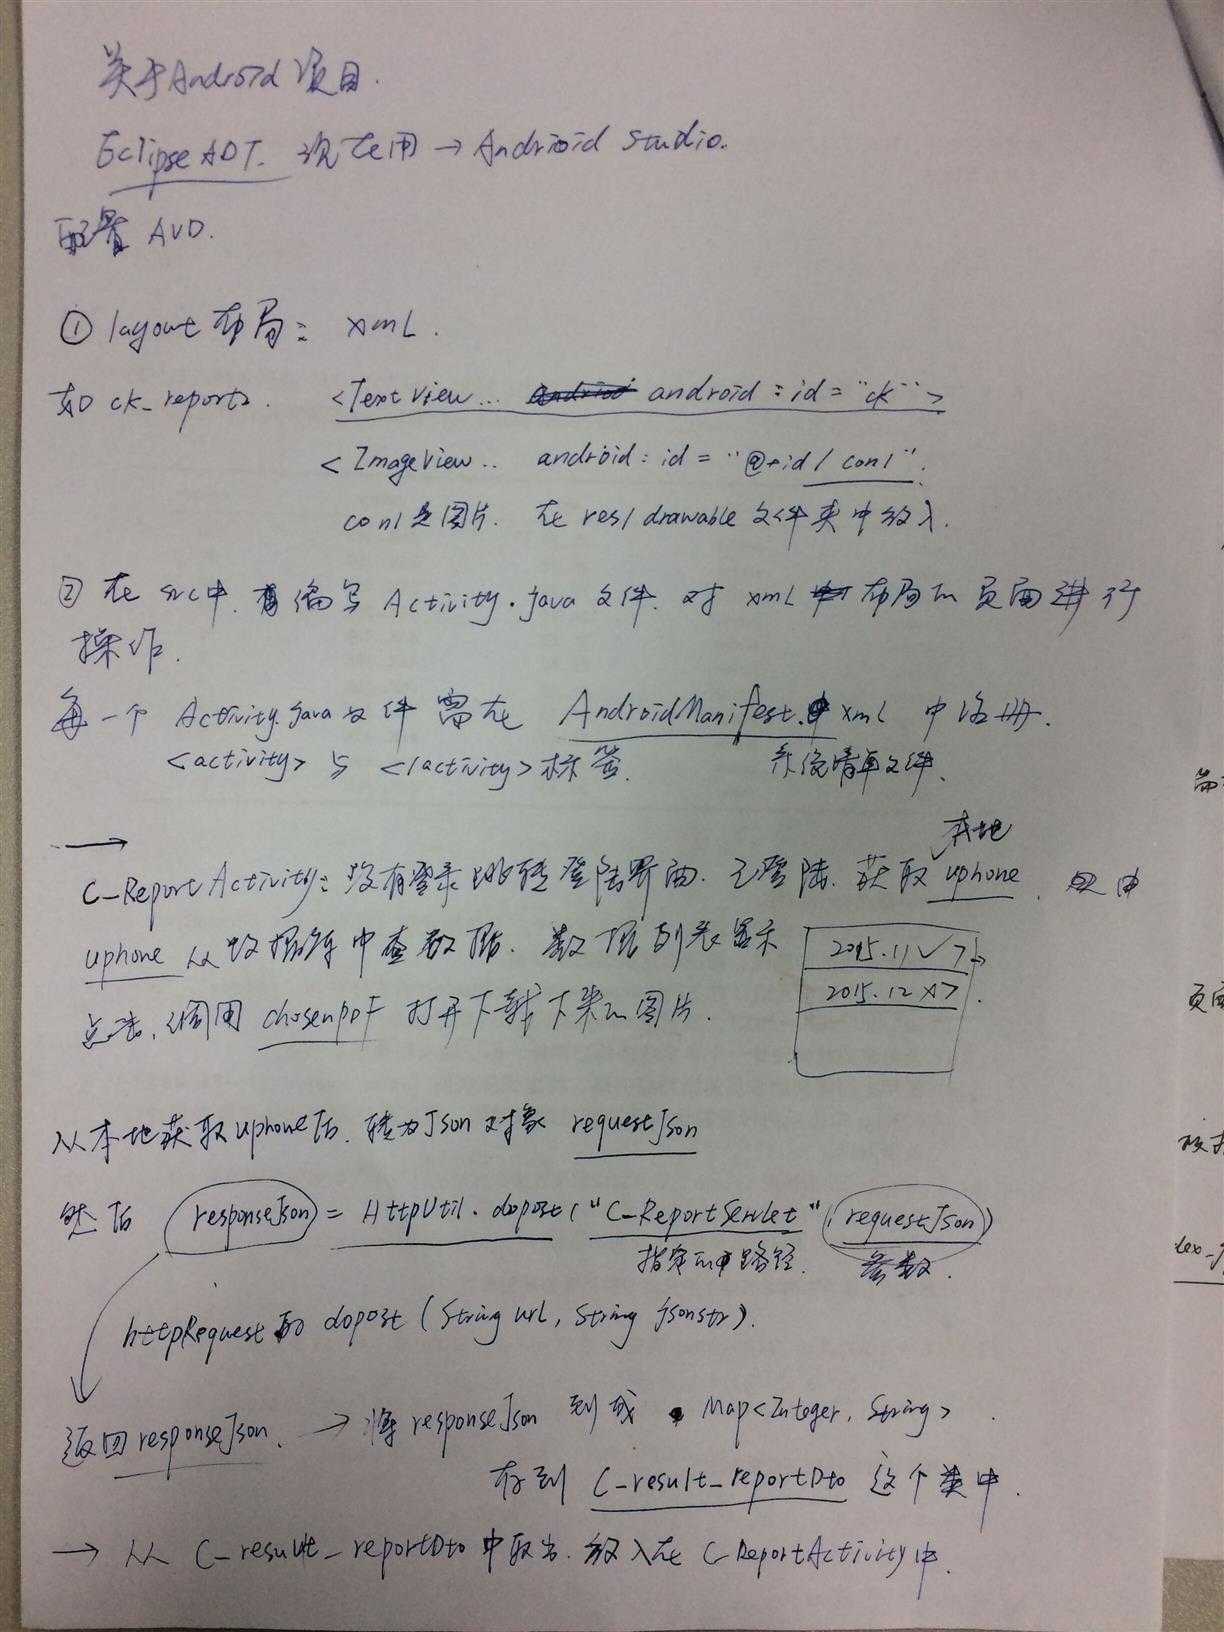 关于Android 项目.
Eclipse ADT. 现在用 → Android Studio.
配置 AVD.
① layout 布局: xml.
如 ck_report. <TextView... android:id="ck">
<ImageView.. android:id = "@+id/con1".
con1是图片. 在 res/drawable 文件夹中放入.
② 在src中. 编写 Activity.java 文件. 对 xml 布局的页面进行
操作.
每一个 Activity.java 文件需在 AndroidManifest.xml 中注册.
<activity> 与 </activity> 标签. 系统清单文件.
→
本地
C_ReportActivity: 没有登录跳转登陆界面. 已登陆. 获取 uphone. 且由
uphone 从数据库中查数据. 数据列表显示
2015.11 ✓ >
2015.12 x >
点击, 调用 chosenpDF 打开下载下来的图片.
从本地获取uphone后. 转为Json 对象 requestJson
然后 responseJson = HttpUtil.dopost("C_ReportServlet", requestJson)
指定的路径. 参数.
httpRequest 的 dopost (String url, String jsonstr).
返回 responseJson. → 将 responseJson 到成 Map<Integer, String>
存到 C_result_reportDto 这个类中.
→ 从 C_result_reportDto 中取出. 放入在 C_ReportActivity中.
页面